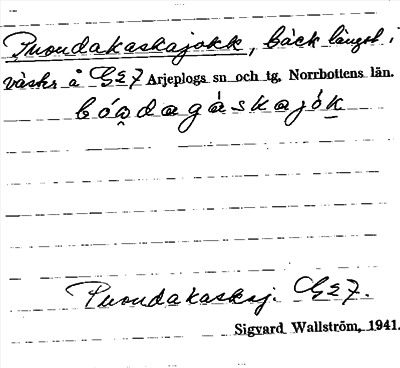 Puondakaskajokk, bäck längst i
väster å G27 Arjeplogs sn och tg, Norrbottens län.
bóa̭dagáskajók̲
Puondakaskaj. G27.
Sigvard Wallström, 1941.